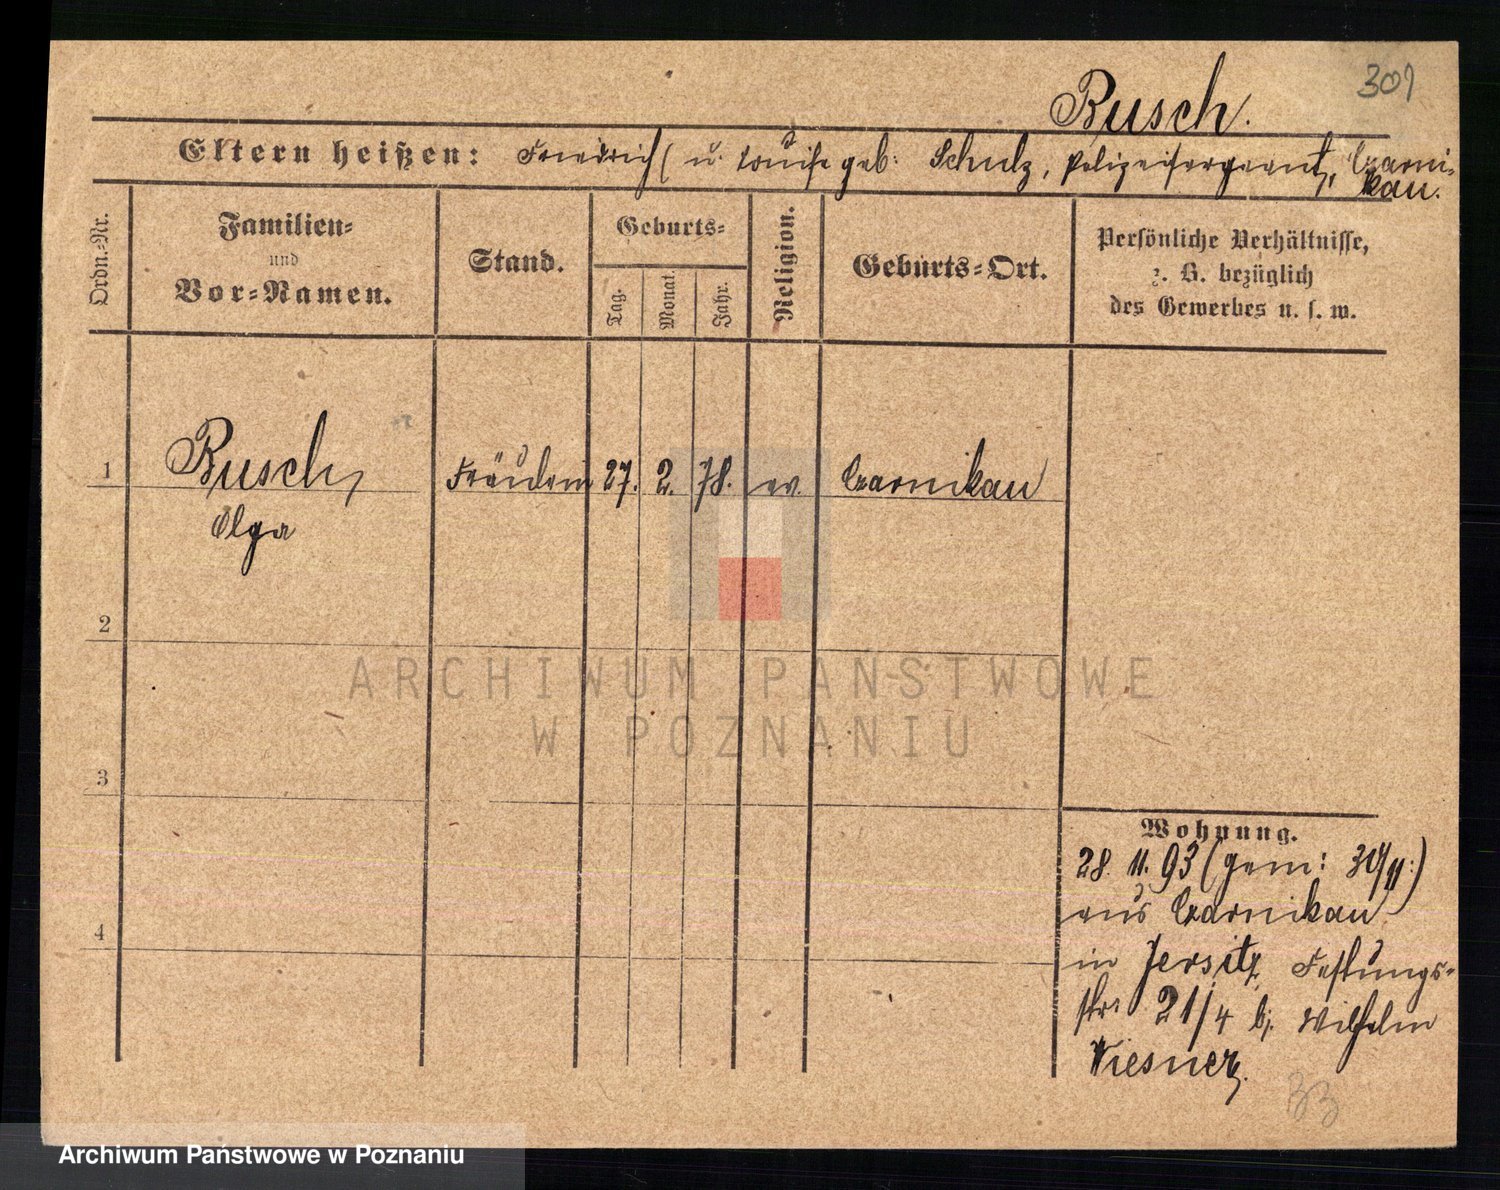 301
Busch.
Eltern heißen: Friedrich u. Louise geb: Schulz, Polizeisergeant, Czarni-
kau.
Ordn.-Nr.
Familien-
und
Vor-Namen.
Stand.
Geburts-
Tag.
Monat.
Jahr.
Religion.
Geburts-Ort.
Persönliche Verhältnisse,
z. B. bezüglich
des Gewerbes u. s. w.
1 Busch, Fräulein 27. 2. 78. ev. Czarnikau
Olga
2
3
4
Wohnung.
28. 11. 93 (gem: 30/11.)
aus Czarnikau
in Jersitz, Festungs-
str. 21/4 b. Wilhelm
Wiesner.
33
ARCHIWUM PAŃSTWOWE
W POZNANIU
Archiwum Państwowe w Poznaniu